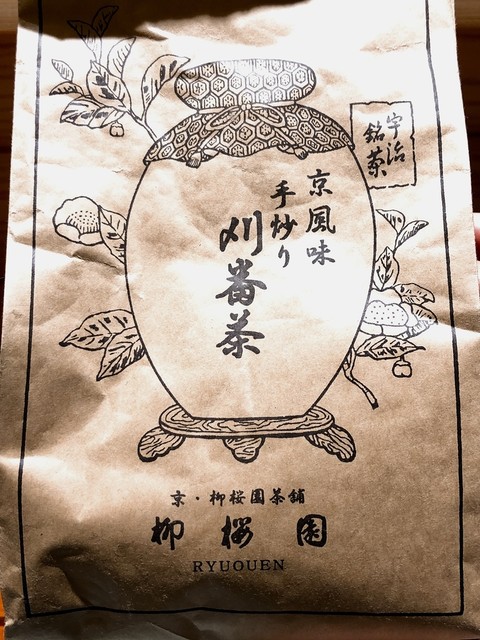 宇治
銘茶
京風味
手炒り
刈番茶
京・柳桜園茶舗
柳桜園
RYUOUEN